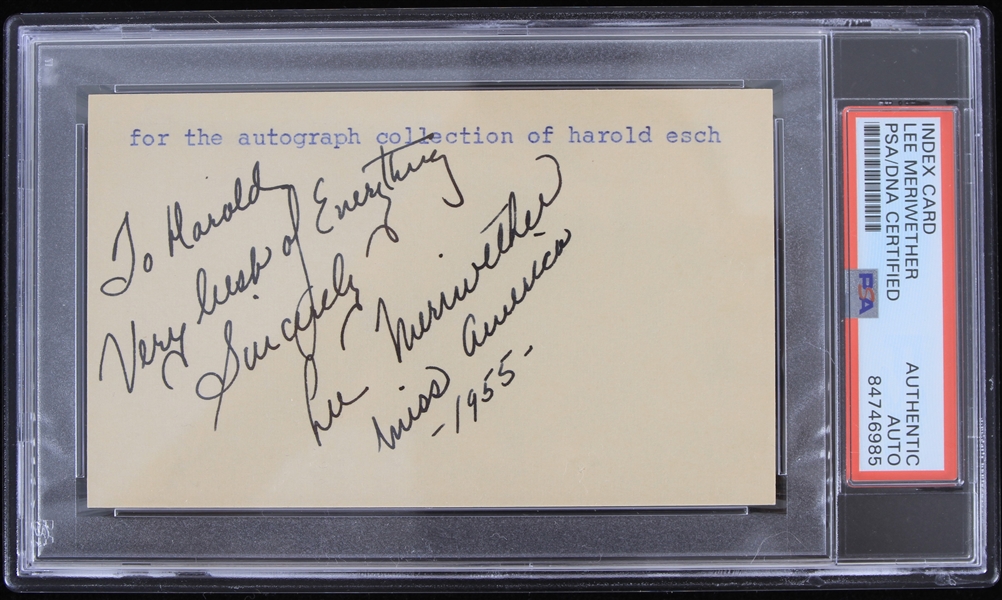 for the autograph collection of harold esch
To Harold
Very best of Everything
Sincerely
Lee Meriwether
Miss America
-1955-
INDEX CARD
LEE MERIWETHER
PSA/DNA CERTIFIED
PSA
AUTHENTIC
AUTO
84746985